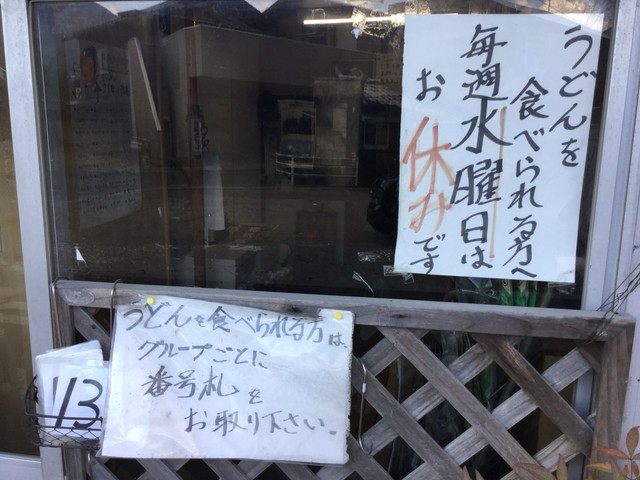 うどんを
食べられる方へ
毎週水曜日は
お休みです
うどんを食べられる方は、
グループごとに
番号札を
お取り下さい。
13